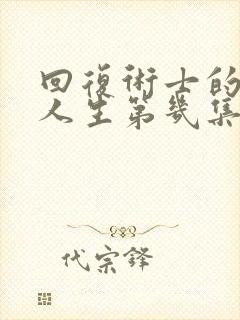 回復術士的
人生第幾集
代宗鋒